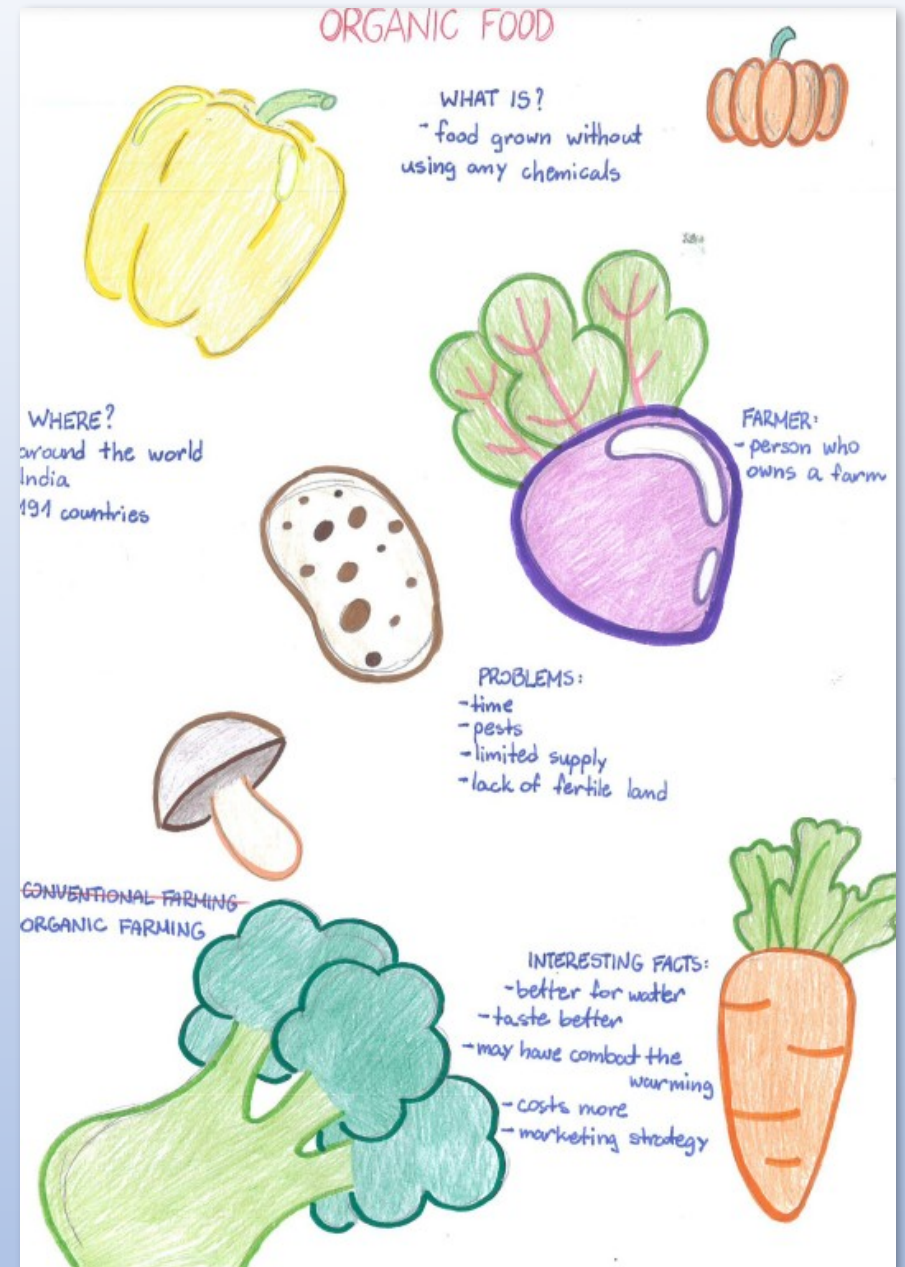 ORGANIC FOOD
WHAT IS?
- food grown without
using any chemicals
WHERE?
around the world
India
191 countries
FARMER:
- person who
owns a farm
PROBLEMS:
- time
- pests
- limited supply
- lack of fertile land
CONVENTIONAL FARMING
ORGANIC FARMING
INTERESTING FACTS:
- better for water
- taste better
- may have combat the
warming
- costs more
- marketing strategy